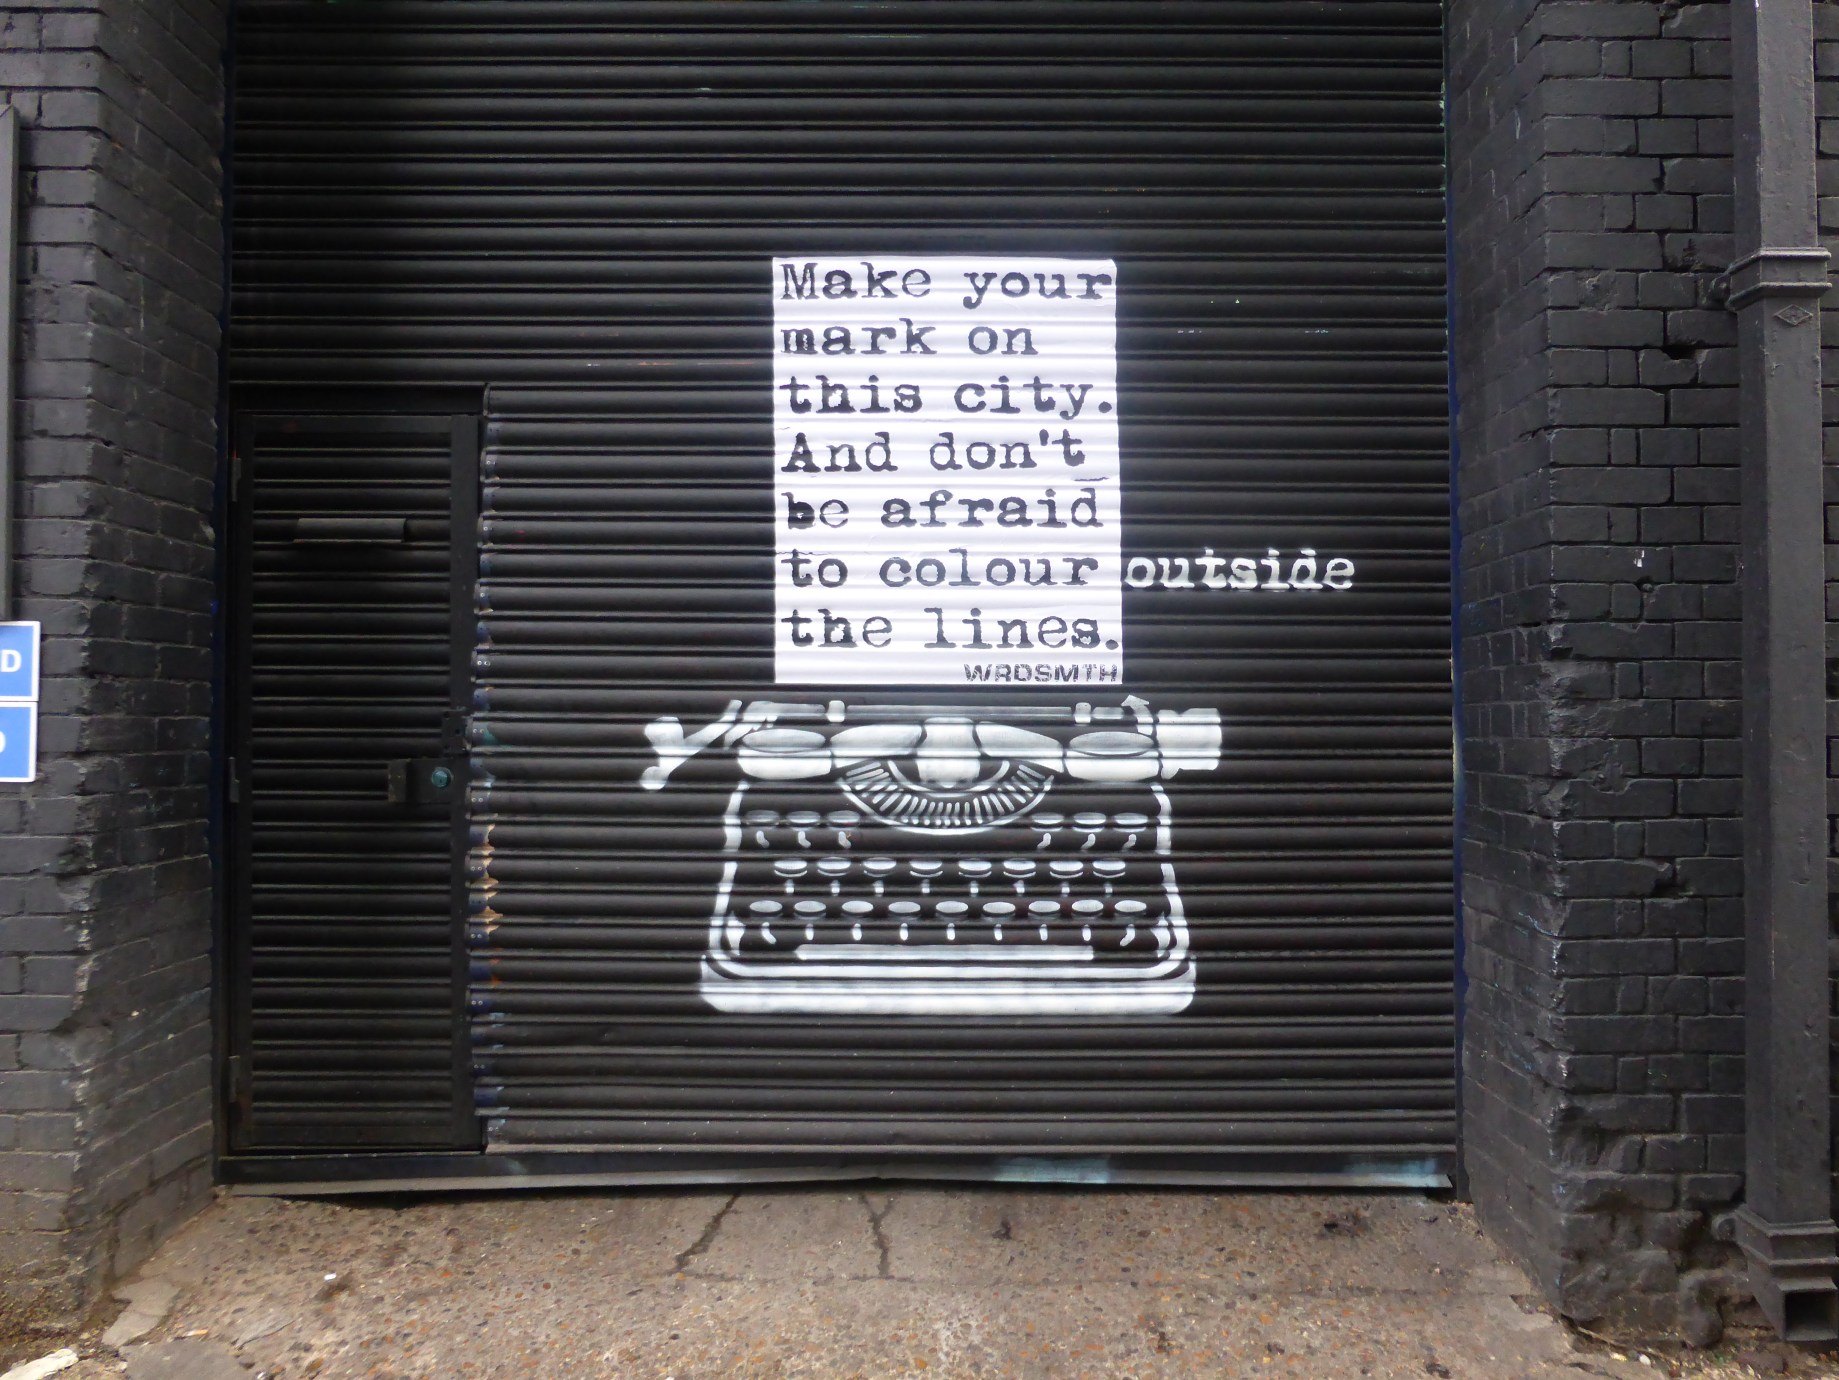 Make your
mark on
this city.
And don't
be afraid
to colour outside
the lines.
WRDSMTH
D